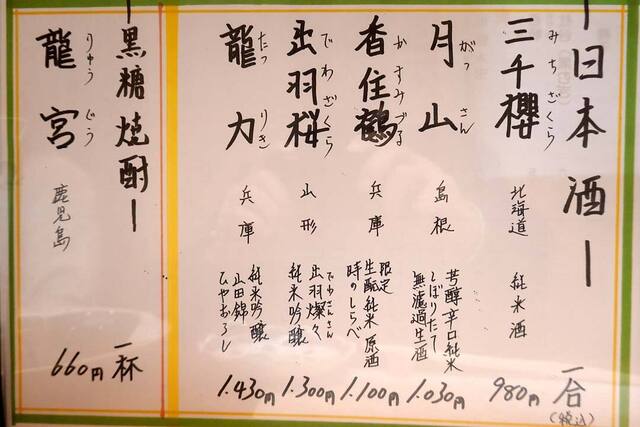 ー日本酒ー
一合
(税込)
三千櫻
みちざくら
北海道
純米酒
980円
月山
がっさん
島根
芳醇辛口純米
しぼりたて
無濾過生酒
1.030円
香住鶴
かすみづる
兵庫
限定
生酛純米原酒
時のしらべ
1.100円
出羽桜
でわざくら
山形
出羽燦々
でわさんさん
純米吟醸
1.300円
龍力
たつりき
兵庫
純米吟醸
山田錦
ひやおろし
1.430円
ー黒糖焼酎ー
一杯
龍宮
りゅうぐう
鹿児島
660円